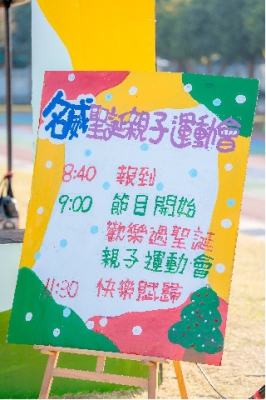 聖誕親子運動會
8:40 報到
9:00 節目開始
歡樂過聖誕
親子運動會
11:30 快樂賦歸